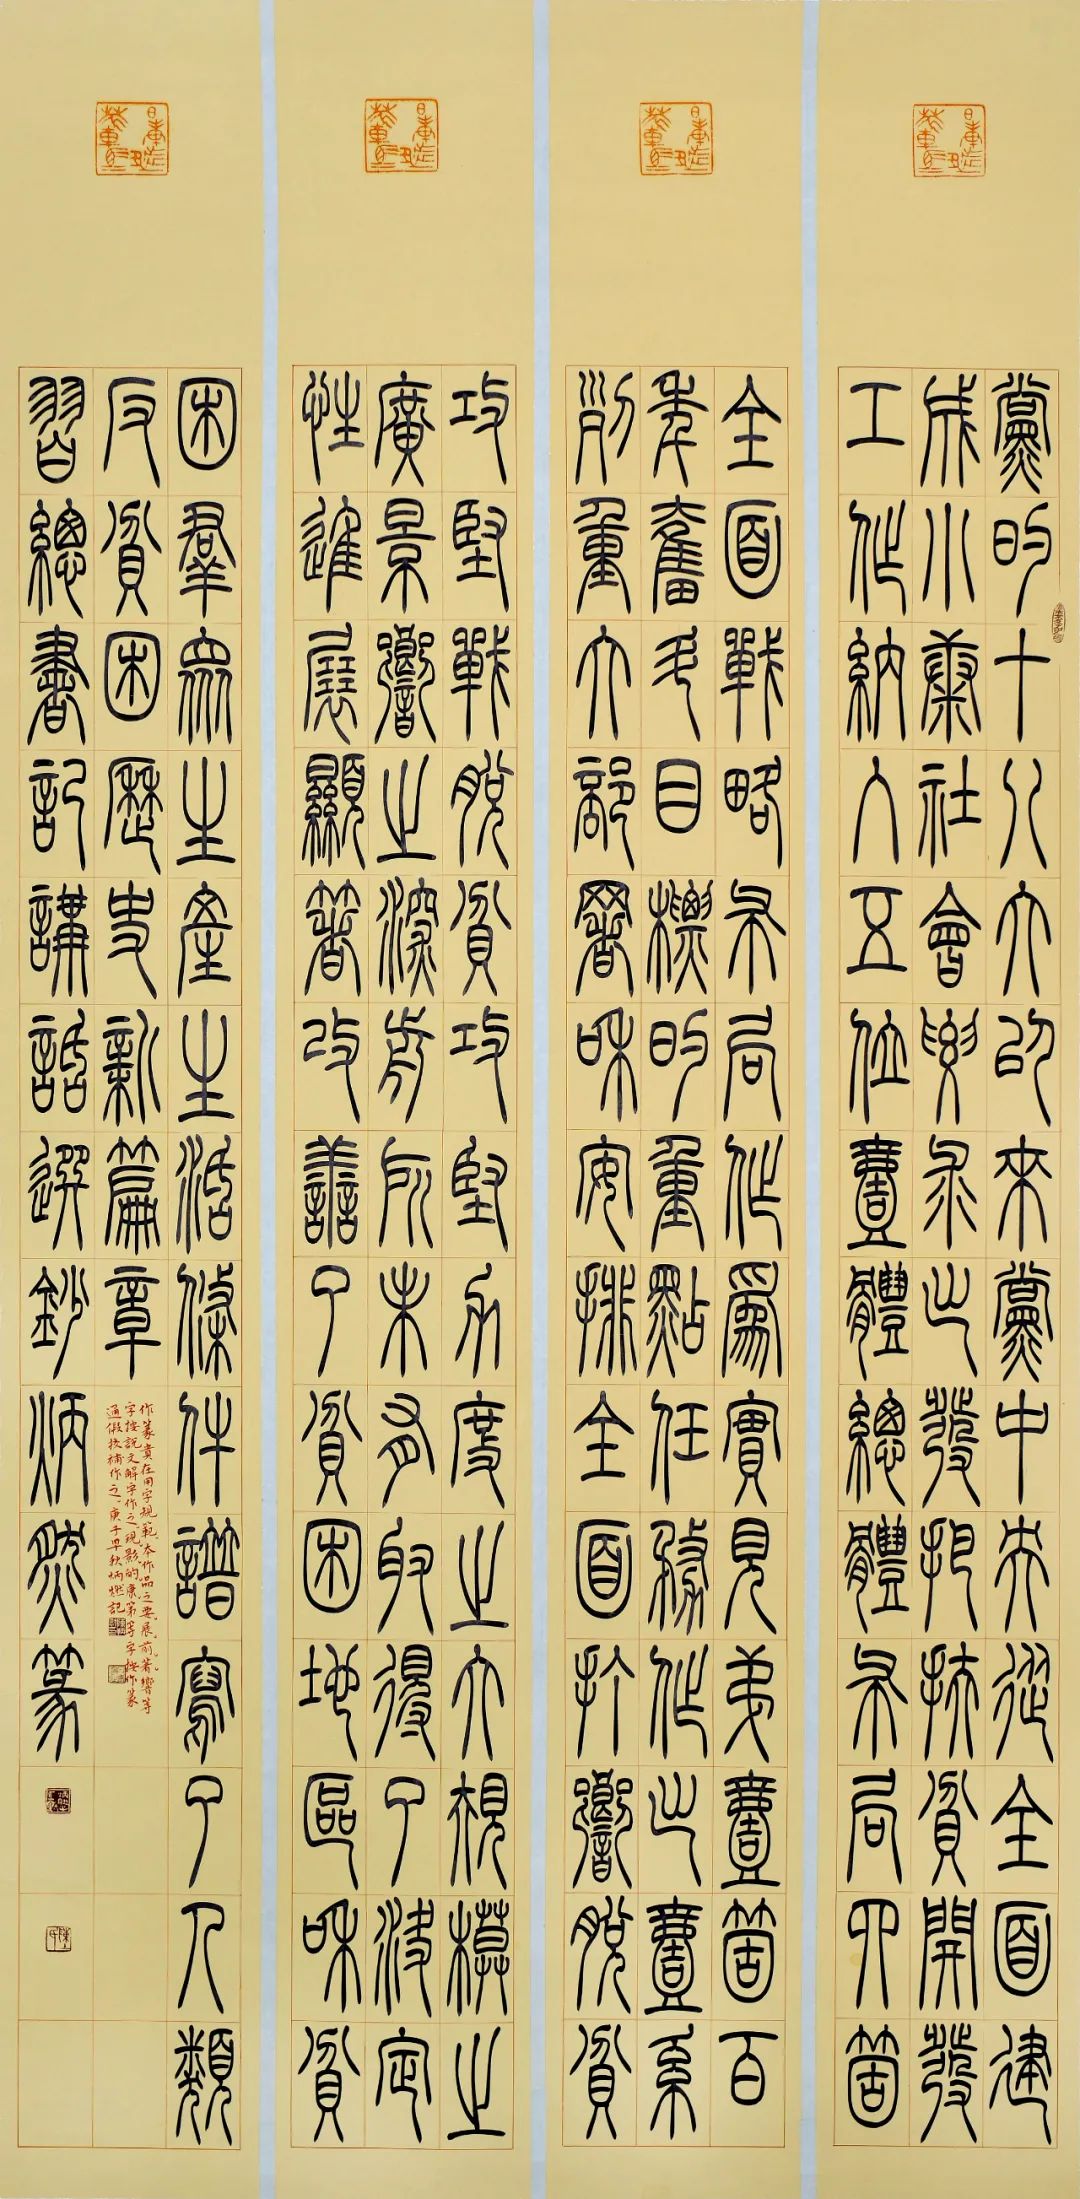 黨的十八大以來黨中央從全面建
成小康社會要求出發把扶貧開發
工作納入五位壹體總體布局四箇
全面戰略布局作爲實見弟壹箇百
年奮鬥目標的重點任務作出壹系
列重大部署和安排全面打響脫貧
攻堅戰脫貧攻堅力度之大規模之
廣景響之深前所未有取得了決定
性進展顯著改善了貧困地區和貧
困羣眾生產生活條件譜寫了人類
反貧困歷史新篇章
作篆貴在用字規範、本作品之要、展、前、著、響等
字按說文解字作之、現影的康第等字按作篆
通假按補作之、庚子早秋炳燃記
習總書記講話選鈔炳然篆